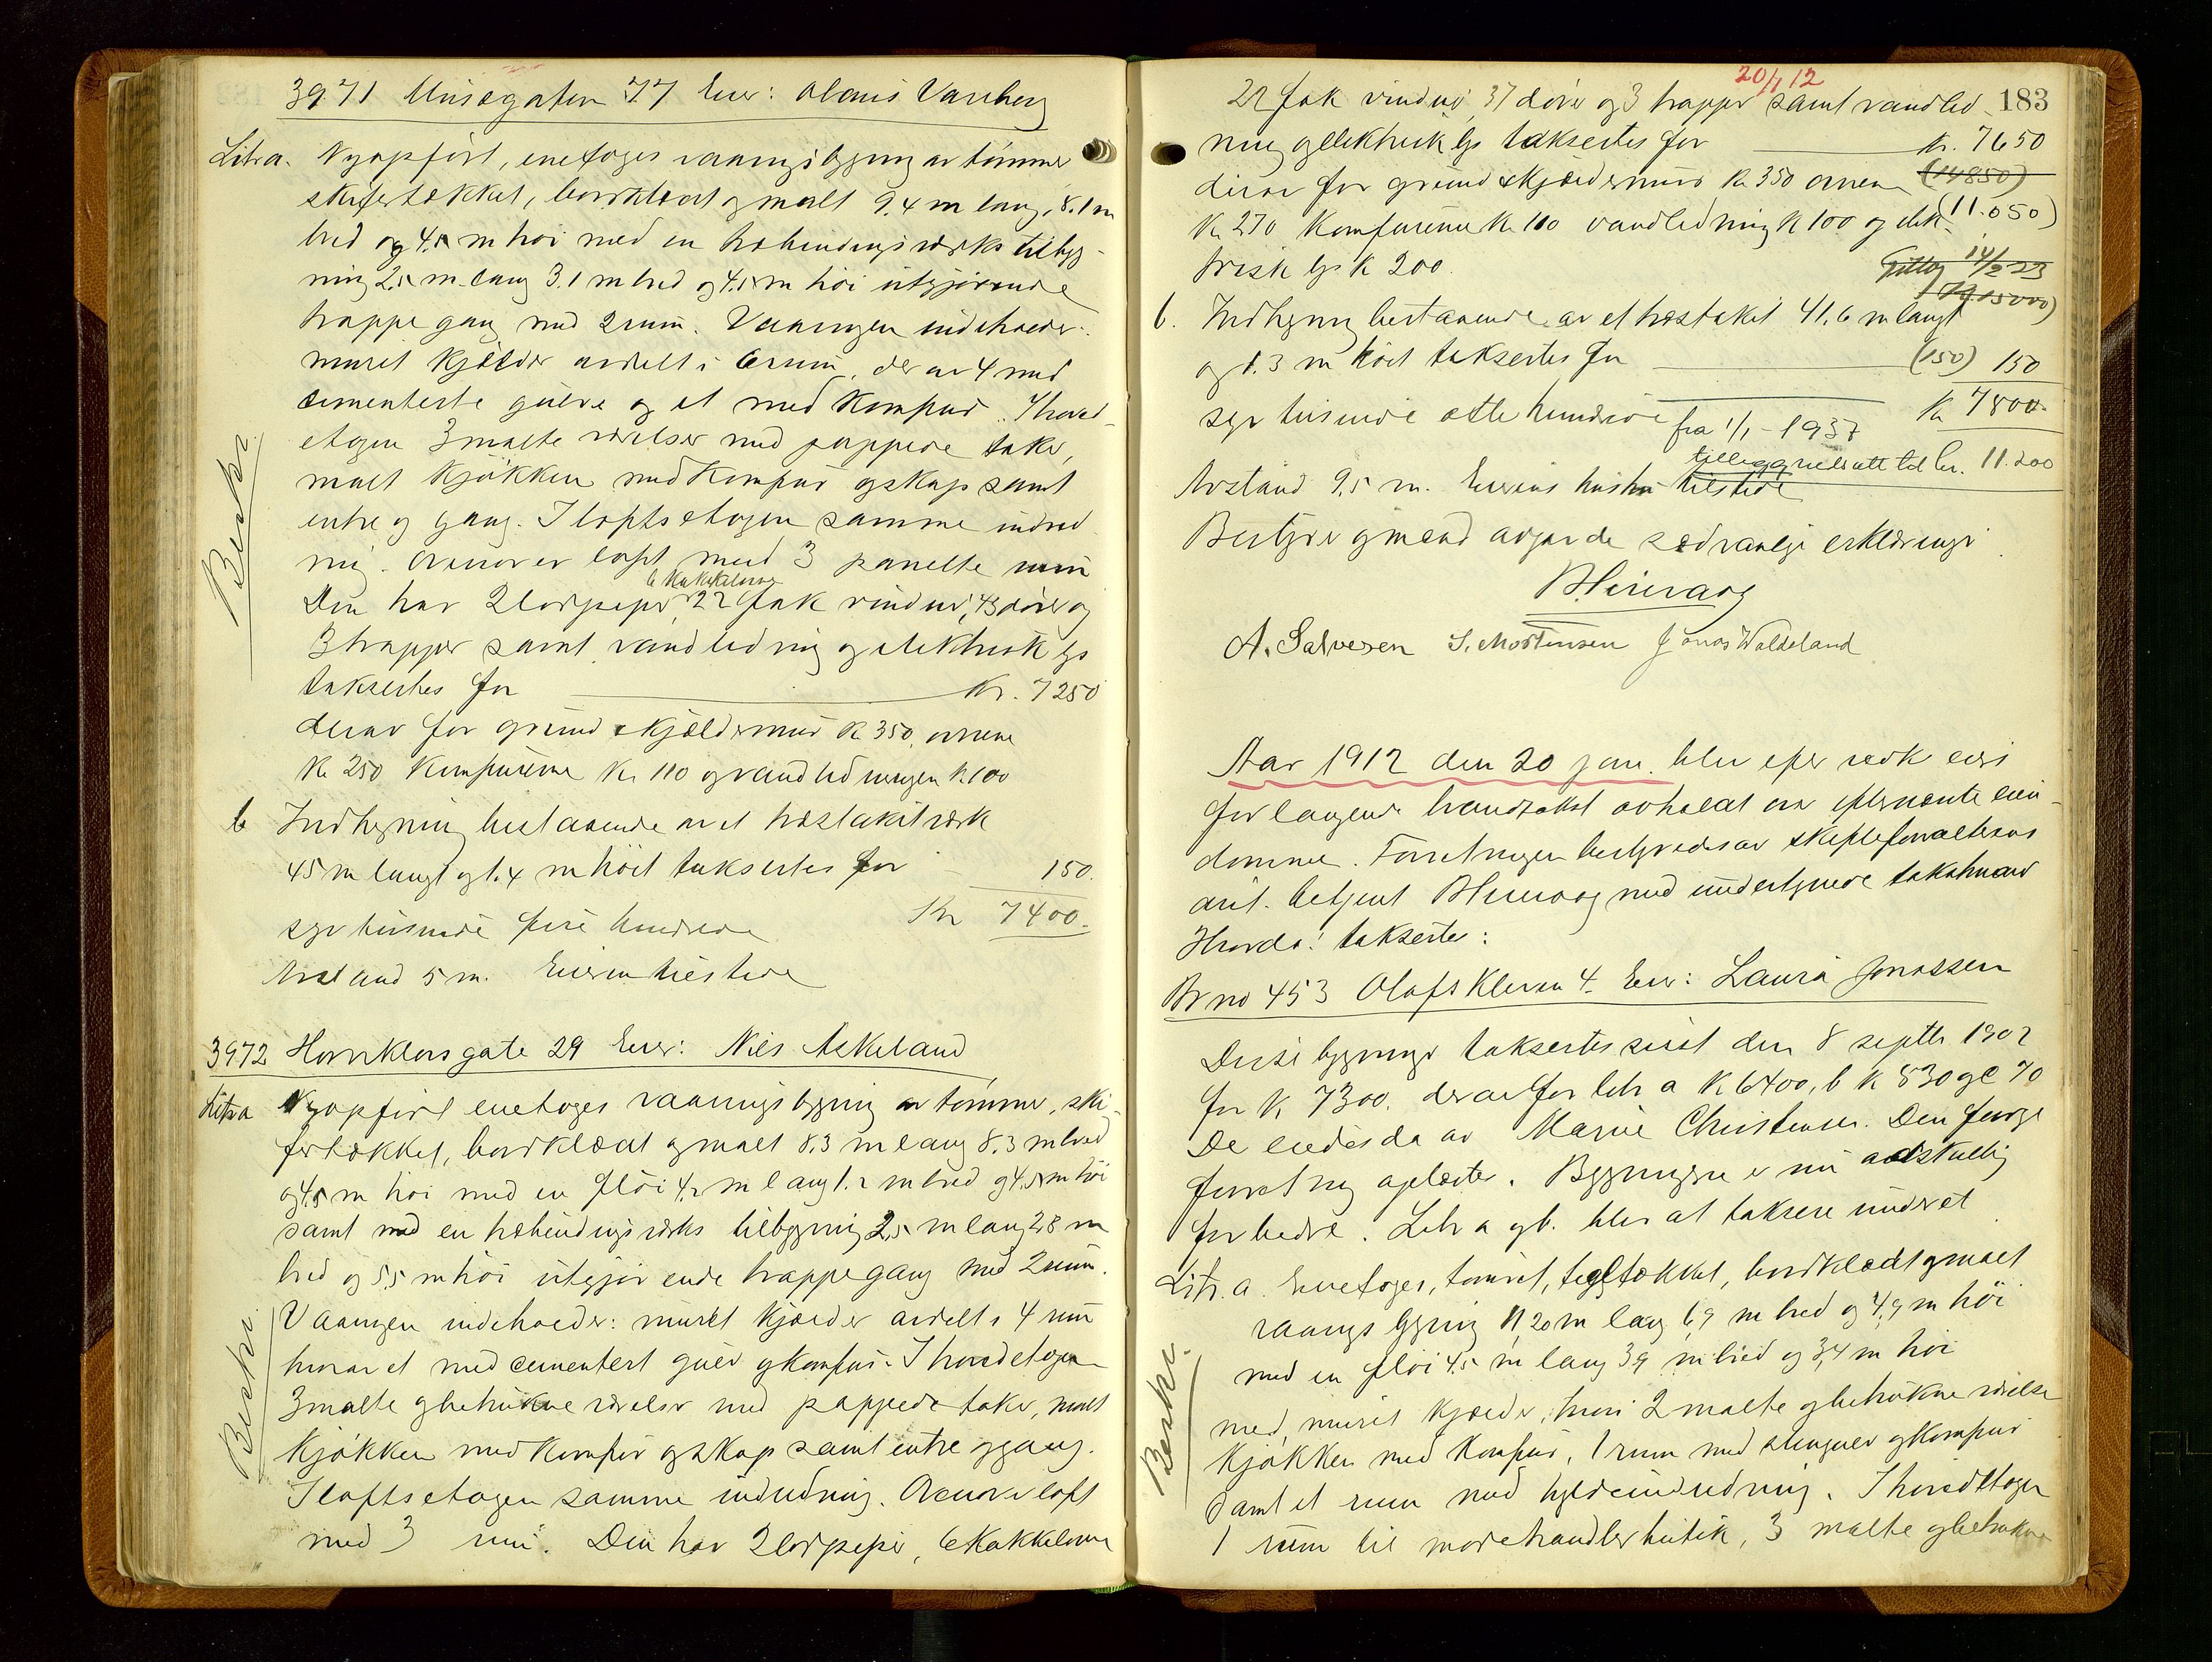 3971 Musegaten 77 Eier: Olaus Vareberg
Litra. Nyopført, enetages vaaningsbygning av tømmer
skifertækket, bordklædt og malt 9.4 m lang, 8.1 m
bred og 4.5 m høi med en træbindingsværks tilbyg-
ning 2.5 m lang 3.1 m bred og 4.5 m høi utgjørende
trappegang med 2 rum. Vaaningen indeholder:
muret kjelder avdelt i 6 rum, der av 4 med
cementerte gulve og et med komfur. I hoved-
etagen 3 malte værelser med pappede taker,
malt kjøkken med komfur og skap samt
entre og gang. I loftsetagen samme indred
ning. Ovenover loft med 3 panelte rum
6 kakkelovne
Den har 2 lodpiper, 22 fak vinduer, 43 dører og
3 trapper samt vandledning og elektrisk lys
taksertes for Kr. 7250
derav for grund & kjældermur K 350, ovnene
Kr 250 komfurene Kr 110 og vandledningen K 100
b Indhegning bestaaende av et træstakitværk
45 m langt og 1.4 m høit taksertes for 150.
syv tusinde fire hundrede Kr 7400.
Avstand 5 m. Eieren tilstede
Beskr.
3972 Hornklovsgate 29 Eier: Nils Askeland
Litra Nyopført enetages vaaningsbygning av tømmer, ski-
fertækket, bordklædt og malt 8.3 m lang 8.3 m bred
og 4.5 m høi med en fløi 4.2 m lang 1.2 m bred og 4.5 m høi
samt med en træbindingsværks tilbygning 2.5 m lang 2.8 m
bred og 5.5 m høi utgjørende trappegang med 2 rum.
Vaaningen indeholder: muret kjælder avdelt i 4 rum
hvorav et med cementert gulv og komfur. I hovedetagen
3 malte og betrukne værelser med pappede taker, malt
kjøkken med komfur og skap samt entre og gang.
I loftsetagen samme indredning. Ovenover loft
med 3 rum. Den har 2 lodpiper, 6 kakkelovne
Beskr.
20/1 12
183
22 fak vinduer, 37 dører og 3 trapper samt vandled-
ning og elektrisk lys taksertes for Kr. 7650
derav for grund & kjældermur Kr 350 ovnene (14850)
Kr 270 komfurene Kr 110 vandledning K 100 og elek- (11.050)
trisk lys K 200.
Tillæg 14/2 23
(15000)
b. Indhegning bestaaende av et træstakit 41.6 m langt
og 1.3 m høit taksertes for (150) 150
syv tusinde otte hundrede Kr 7800.
fra 1/1 - 1937
tillegg nedsatt til kr. 11.200
Avstand 9.5 m. Eierens hustru tilstede
Bestyrer og mænd avgav de sedvanlige erklæringer.
A. Salvesen S. Mortensen Jonas Waldeland
Aar 1912 den 20 jan. blev efter vedk eiers
forlangende brandtakst avholdt over efternævnte eien-
domme. Forretningen bestyredes av skifteforvalterens
aut. betjent med undertegnede takstmænd
Hvorda! taksertes:
Br no 453 Olafskleven 4. Eier: Laura Jonassen
Disse bygninger taksertes sidst den 8 septbr 1902
for K 7300. derav for litr a K 6400, b K 830 og c 70
De eiedes da av Marie Christensen. Den forrige
forretning oplæstes. Bygningene er nu adskillig
forbedre. Litr a og b. blev at taksere under et
Litr. a. Enetages, tømret, tegltækket, bordklædt og malt
vaaningsbygning 11,20 m lang 6,9 m bred og 4,9 m høi
med en fløi 4.5 m lang 3,9 m bred og 3,4 m høi
med muret kjælder, hvori 2 malte og betrukne værelser
kjøkken med komfur, 1 rum med stengulv og komfur
samt et rum med hyldeindredning. I hovedetagen
1 rum til motehandlerbutik, 3 malte og betrukne
Beskr.